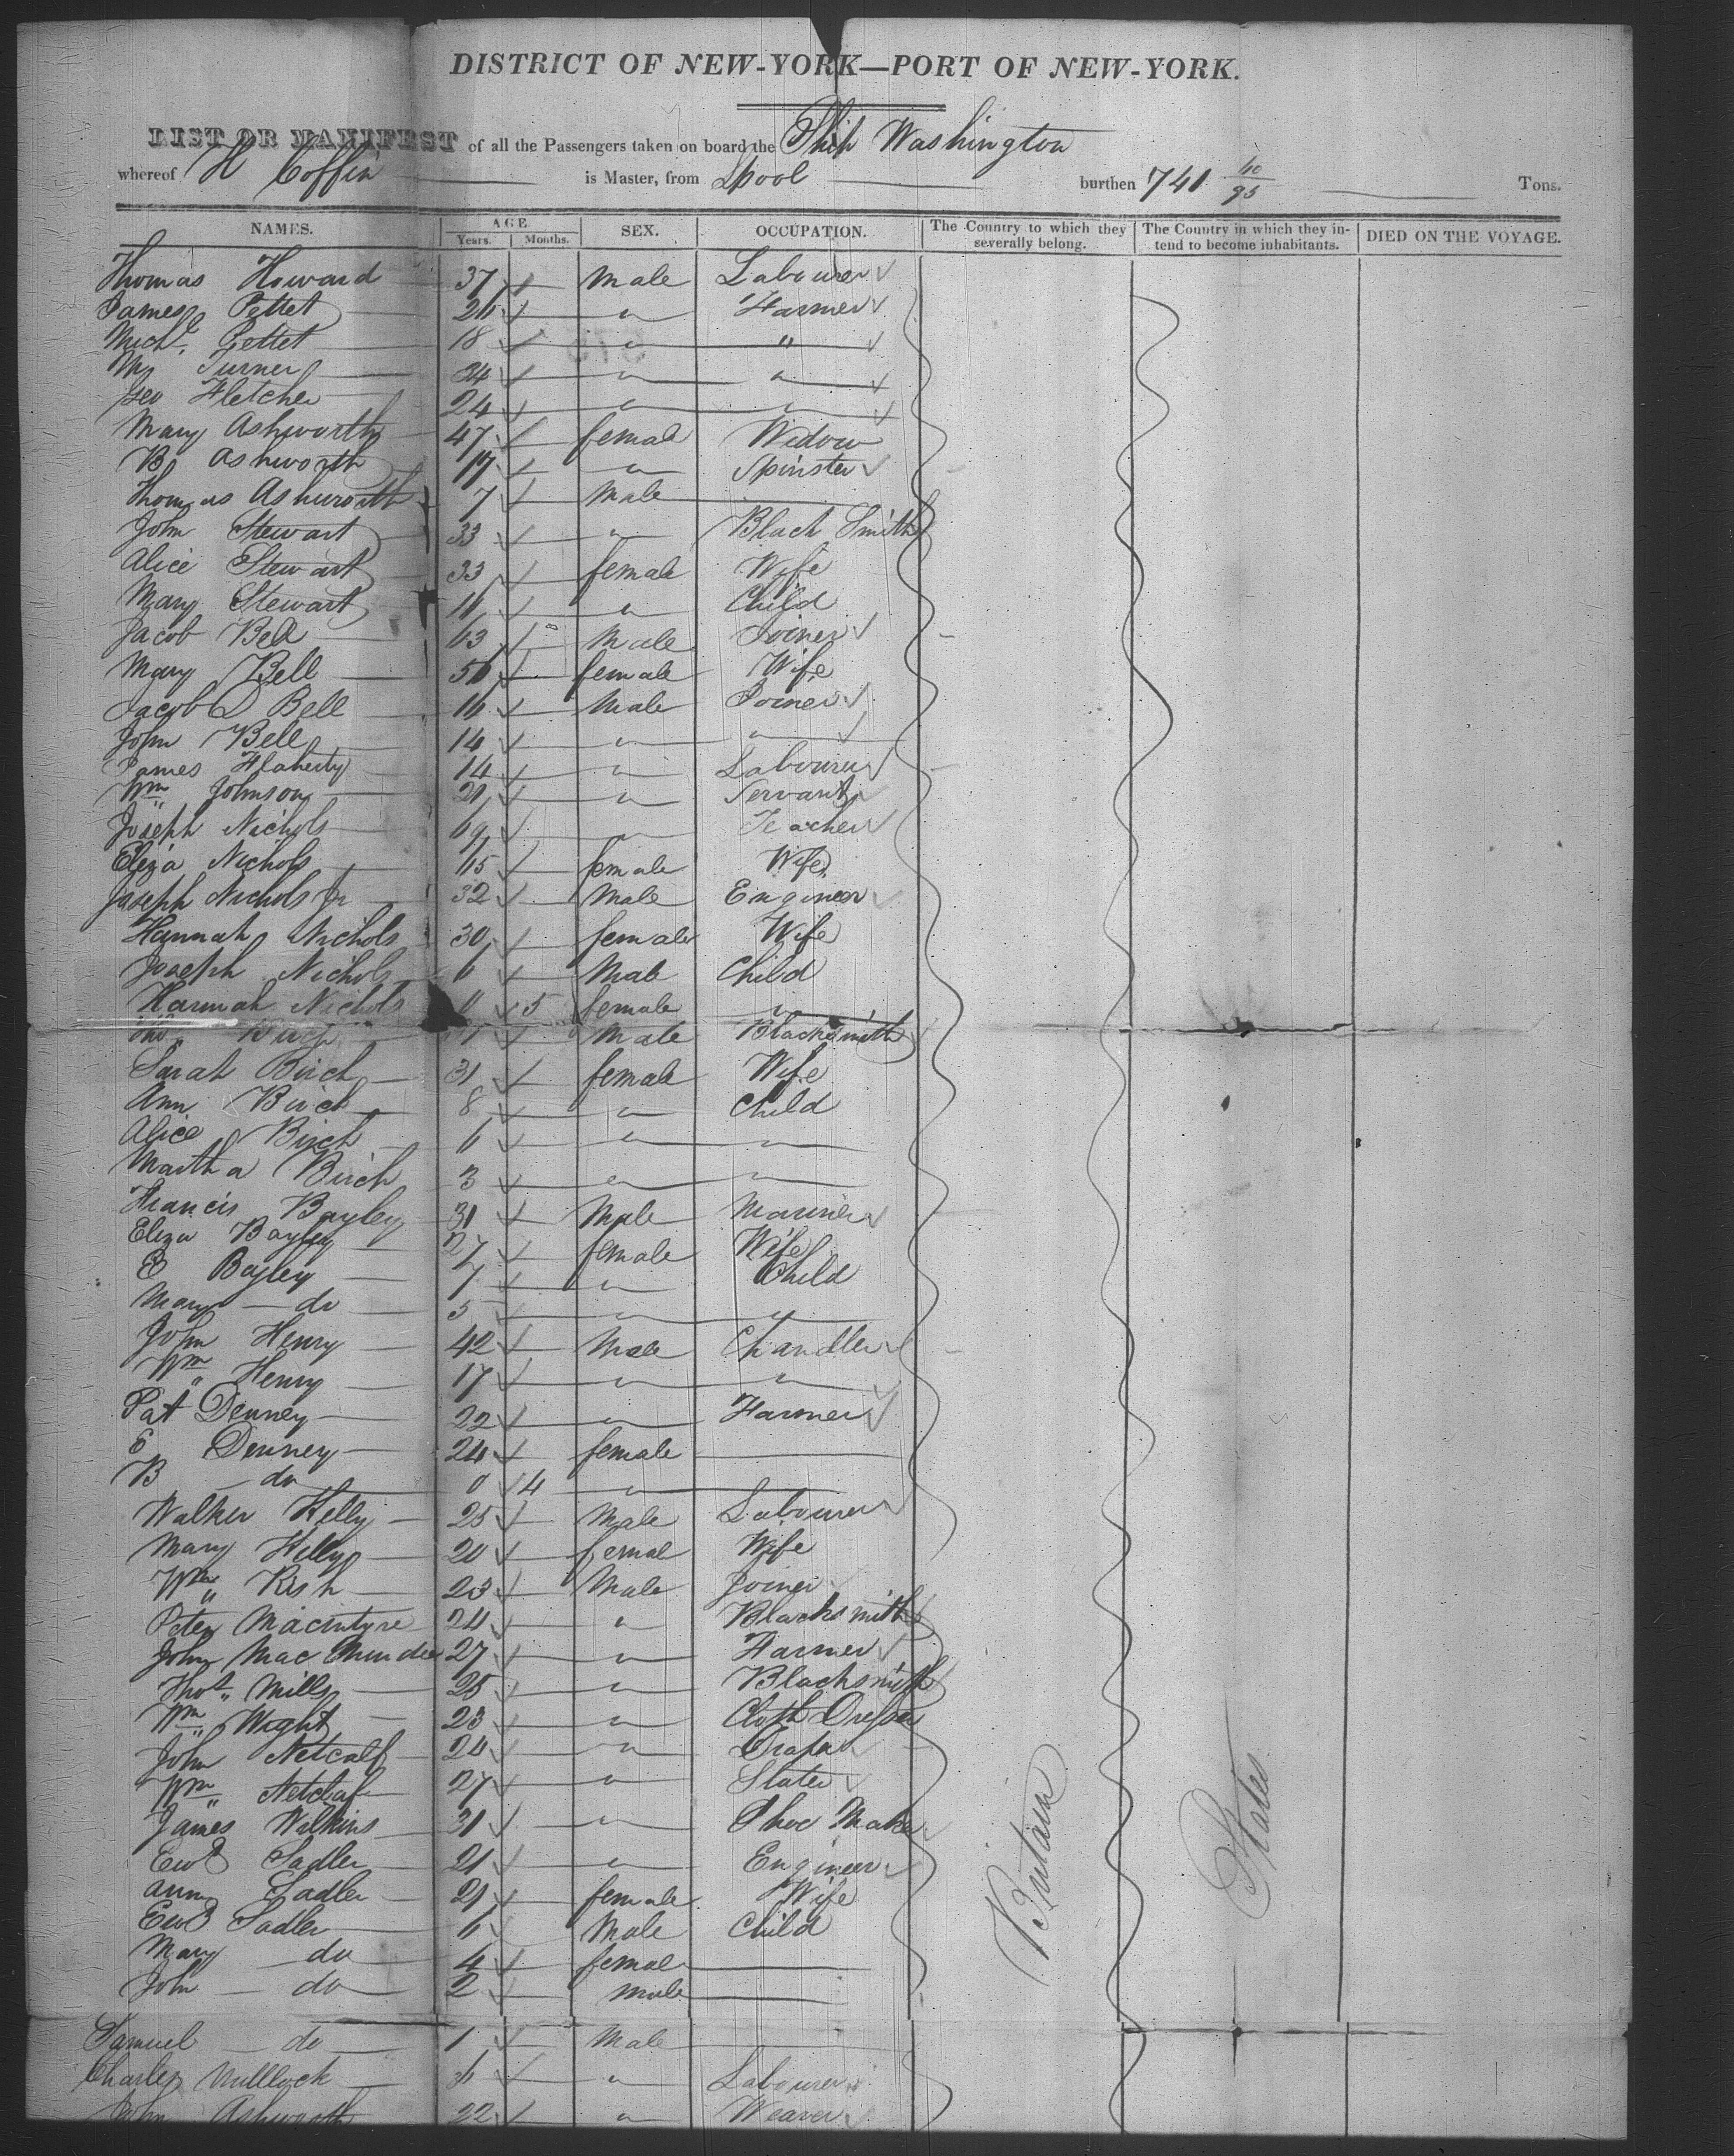 DISTRICT OF NEW-YORK—PORT OF NEW-YORK.
LIST OR MANIFEST of all the Passengers taken on board the Ship Washington
whereof H Coffin is Master, from Lpool burthen 741 40/95 Tons.
NAMES. AGE. SEX. OCCUPATION. The Country to which they severally belong. The Country in which they intend to become inhabitants. DIED ON THE VOYAGE.
Years. Months.
Thomas Howard 37 Male Labourer
James Pettet 26 " Farmer
Michl. Pettet 18 " "
Turner 34 " "
Geo Fletcher 24 " "
Mary Ashworth 47 female Widow
B Ashworth 19 " Spinster
Thomas Ashworth 7 Male
John Stewart 33 " Black Smith
Alice Stewart 33 female Wife
Mary Stewart 11 " Child
Jacob Bell 63 Male Joiner
Mary Bell 56 female Wife
Jacob D Bell 16 Male Joiner
John Bell 14 " "
James Flaherty 14 " Labourer
Wm Johnson 21 " Servant
Joseph Nichols 69 " Teacher
Eliza Nichols 65 female Wife
Joseph Nichols Jr 32 Male Engineer
Hannah Nichols 30 female Wife
Joseph Nichols 6 Male Child
Hannah Nichols 0 5 female "
Thos Birch Male Blacksmith
Sarah Birch 31 female Wife
Ann Birch 8 " Child
Alice Birch 6 " "
Martha Birch 3 " "
Francis Bayley 31 Male Mariner
Eliza Bayley 27 female Wife
E Bayley 7 " Child
Mary do 5 " "
John Henry 42 Male Chandler
Wm Henry 17 " "
Pat Denney 22 " Farmer
E Denney 24 female
B do 0 4 "
Walker Kelly 25 Male Labourer
Mary Kelly 20 female Wife
Wm Rish 23 Male Joiner
Peter Macintyre 24 " Blacksmith
John Mac 27 " Farmer
Thos Mills 25 " Blacksmith
Wm Wight 23 " Cloth Dresser
John Netcalf 24 " Draper
Wm Netclaf 27 " Slater
James Wilkins 31 " Shoe Maker
Ewd Sadler 21 " Engineer
Ann Sadler 21 female Wife
Ewd Sadler 6 Male Child
Mary do 4 female
John do 2 male
Samuel do 1 Male
Charles Mullock " Labourer
John Ashworth 22 " Weaver
Britain
States